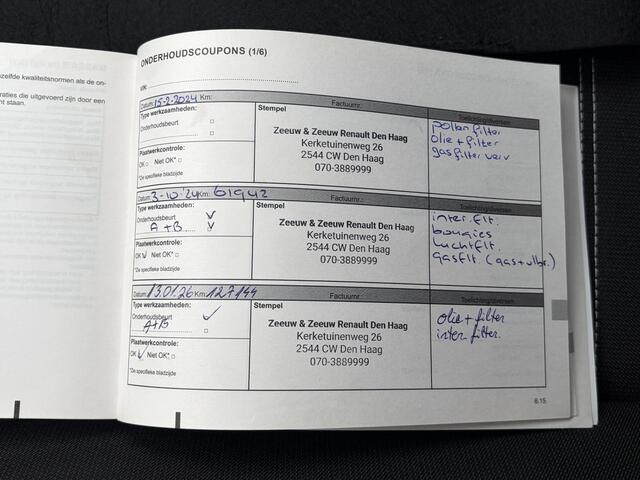 zelfde kwaliteitsnormen als de on-
raties die uitgevoerd zijn door een
t staan.
ONDERHOUDSCOUPONS (1/6)
VIN:
Datum: 15-2-2024 Km:
Factuurnr.
Toelichting/diversen
Type werkzaamheden:
Onderhoudsbeurt □
□
Plaatwerkcontrole:
OK □ Niet OK* □
*De specifieke bladzijde
Stempel
Zeeuw & Zeeuw Renault Den Haag
Kerketuinenweg 26
2544 CW Den Haag
070-3889999
pollen filter
olie + filter
gasfilter verv
Datum: 3-10-24 Km: 61942
Factuurnr.:
Toelichting/diversen
Type werkzaamheden:
Onderhoudsbeurt ✓
A + B ✓
Plaatwerkcontrole:
OK ✓ Niet OK* □
*De specifieke bladzijde
Stempel
Zeeuw & Zeeuw Renault Den Haag
Kerketuinenweg 26
2544 CW Den Haag
070-3889999
inter.flt.
bougies
luchtflt.
gasflt. (gas+vlbr.)
Datum: 13.01.26 Km: 127144
Factuurnr.
Toelichting/diversen
Type werkzaamheden:
Onderhoudsbeurt ✓
A+B □
Plaatwerkcontrole:
OK ✓ Niet OK* □
*De specifieke bladzijde
Stempel
Zeeuw & Zeeuw Renault Den Haag
Kerketuinenweg 26
2544 CW Den Haag
070-3889999
olie + filter
inter filter.
6.15